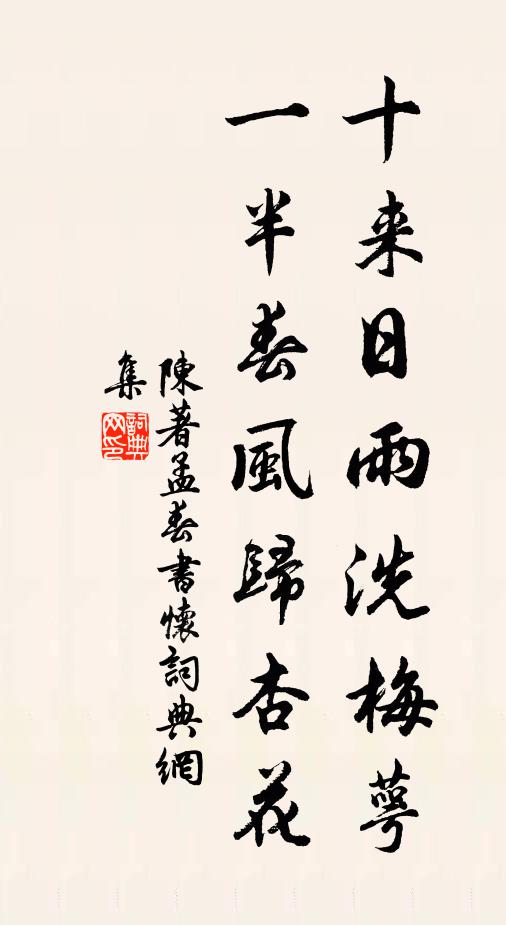 十来日雨洗梅萼
一半春風歸杏花
陳著孟春書懷詞典網
集
詞典
网印